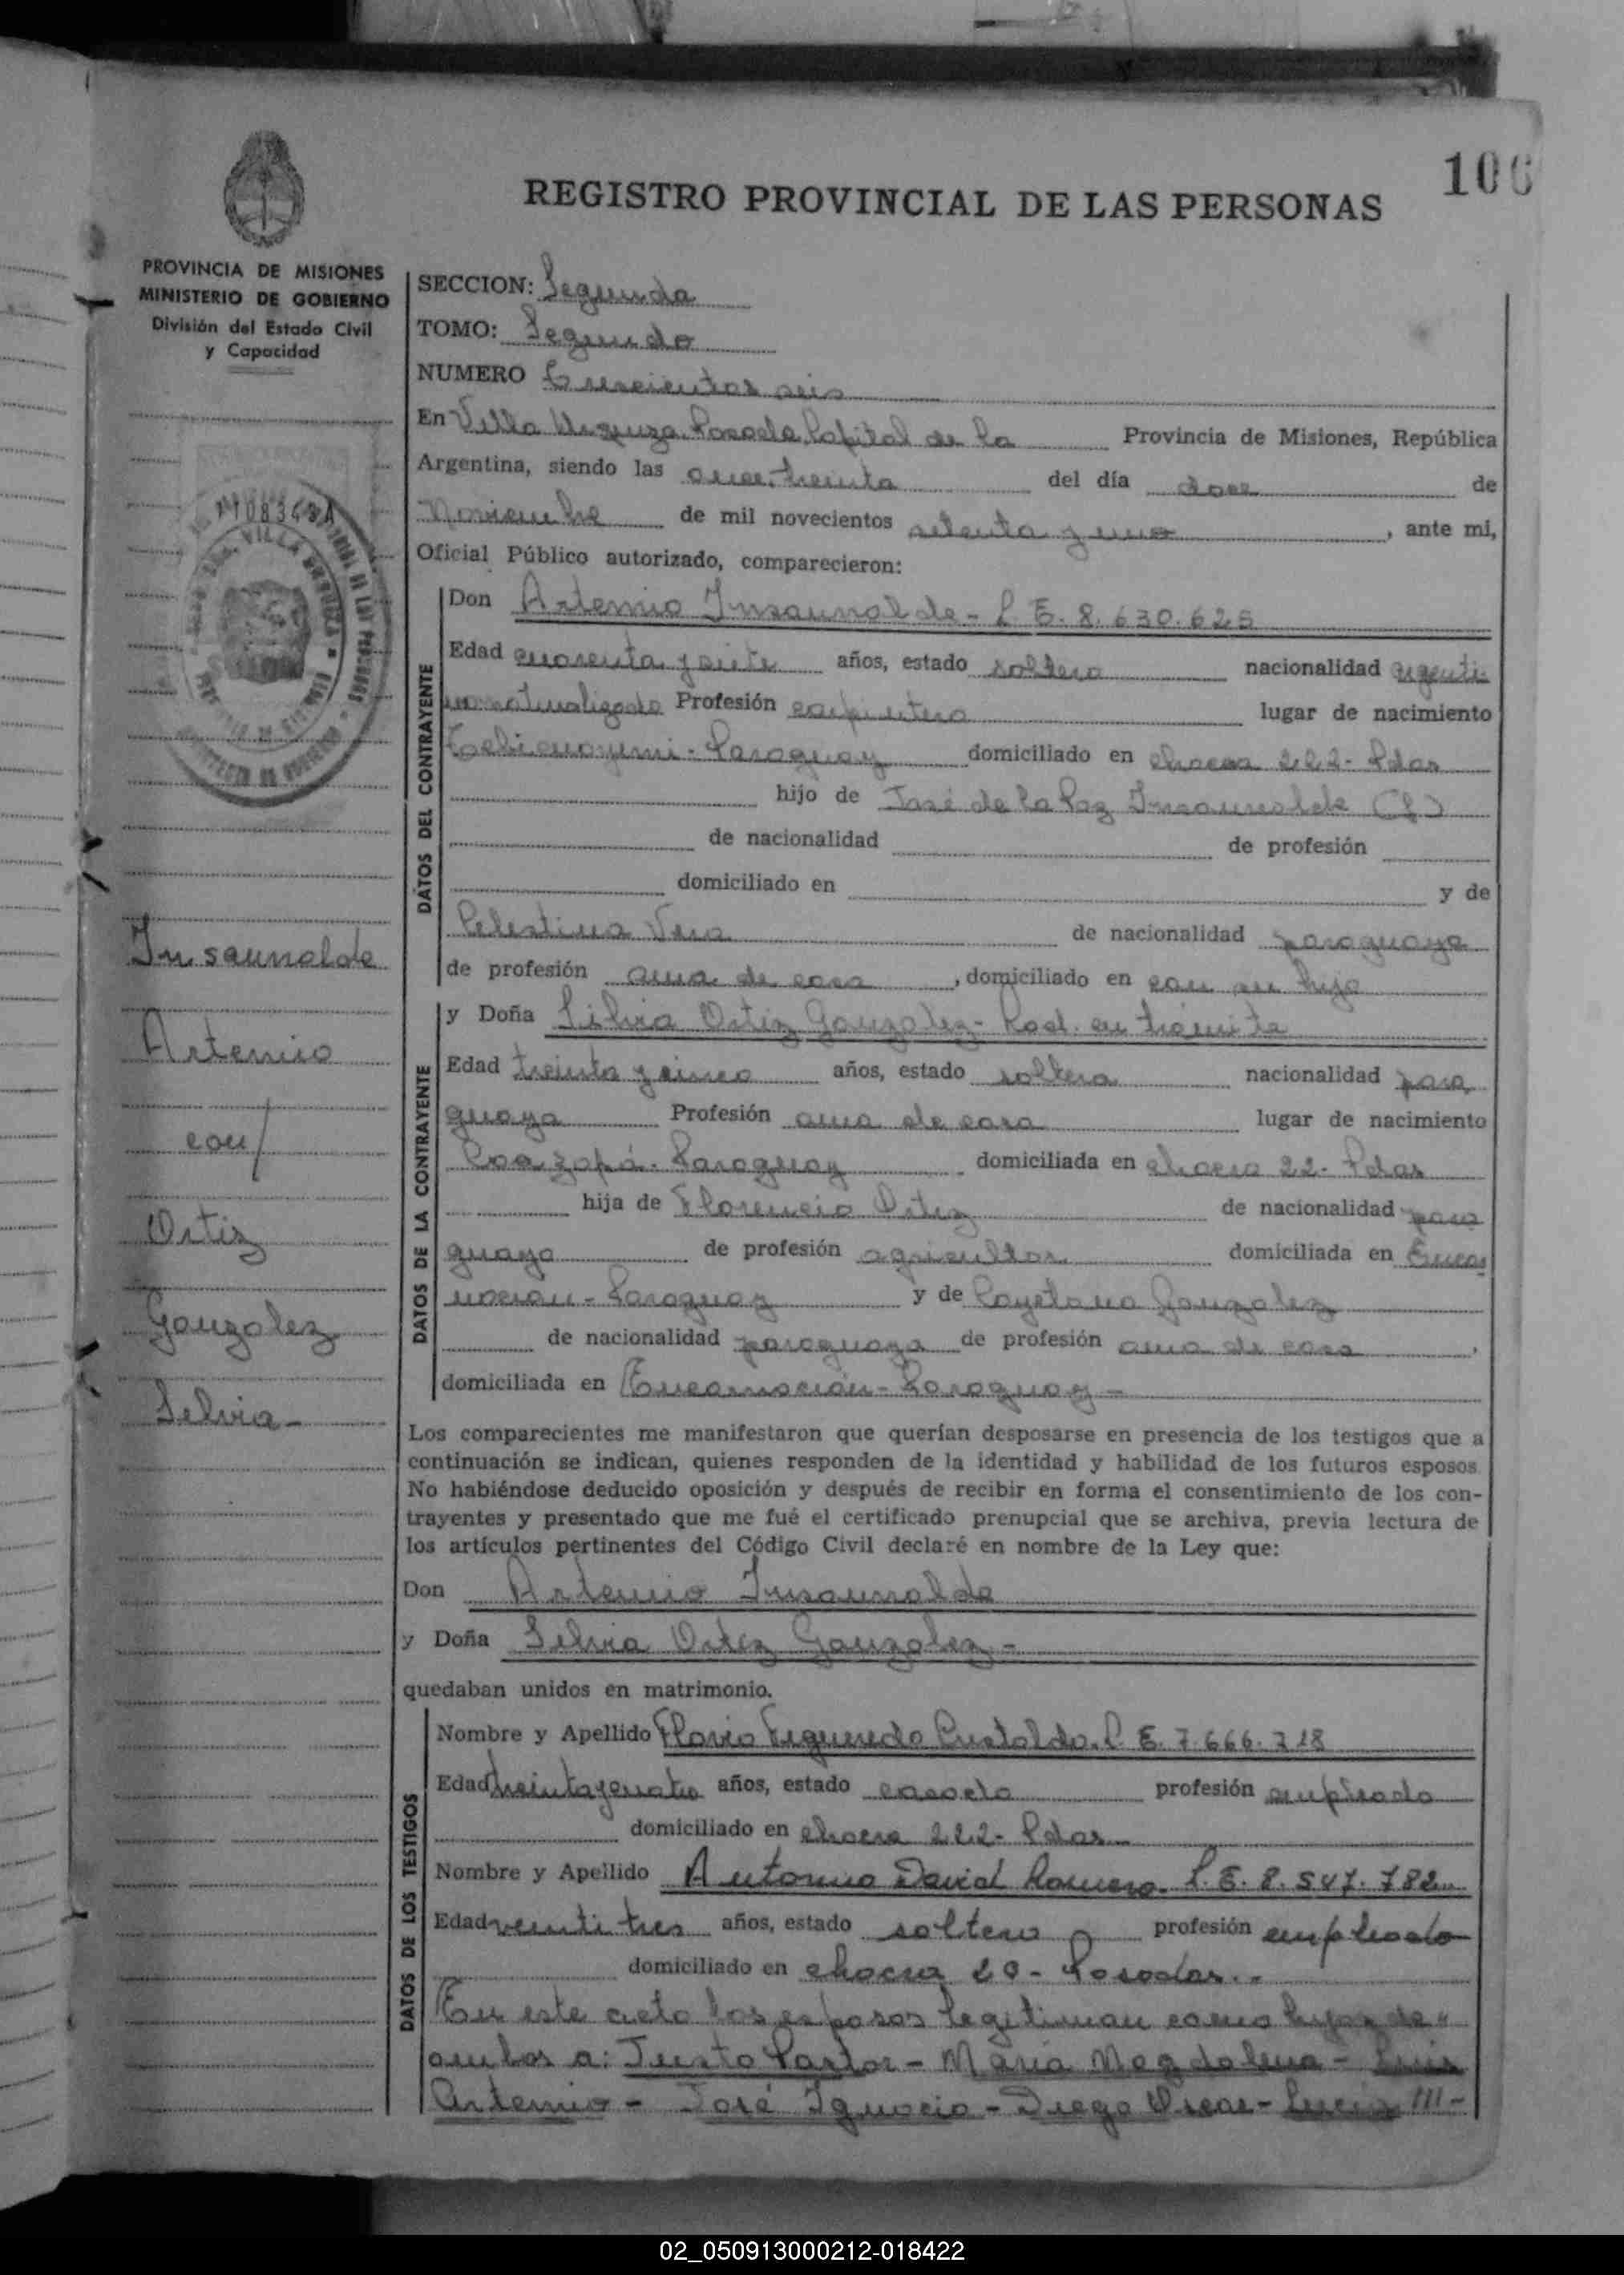 106
REGISTRO PROVINCIAL DE LAS PERSONAS
PROVINCIA DE MISIONES
MINISTERIO DE GOBIERNO
División del Estado Civil
y Capacidad
SECCION: Segunda
TOMO: Segundo
NUMERO Trescientos seis
En Villa Urquiza, Posadas, Capital de la Provincia de Misiones, República
Argentina, siendo las once, treinta del día doce de
Noviembre de mil novecientos setenta y uno, ante mi,
Oficial Público autorizado, comparecieron:
DATOS DEL CONTRAYENTE
Don Artemio Insaurralde - L. E. 8.630.625
Edad cuarenta y siete años, estado soltero nacionalidad argenti
no naturalizado Profesión carpintero lugar de nacimiento
Tebicuarymi - Paraguay domiciliado en chacra 222 - Pdas
hijo de José de la Paz Insaurralde (f)
de nacionalidad de profesión
domiciliado en y de
Celestina Vera de nacionalidad paraguaya
de profesión ama de casa, domiciliado en con su hijo
DATOS DE LA CONTRAYENTE
y Doña Silvia Ortiz Gonzalez - Rad. en trámite
Edad treinta y cinco años, estado soltera nacionalidad para
guaya Profesión ama de casa lugar de nacimiento
Caazapá - Paraguay domiciliada en chacra 22 - Pdas
hija de Florencio Ortiz de nacionalidad para
guayo de profesión agricultor domiciliada en Encar
nacion - Paraguay y de Cayetana Gonzalez
de nacionalidad paraguaya de profesión ama de casa,
domiciliada en Encarnación - Paraguay -
Insaurralde
Artemio
con/
Ortiz
Gonzalez
Silvia -
Los comparecientes me manifestaron que querían desposarse en presencia de los testigos que a
continuación se indican, quienes responden de la identidad y habilidad de los futuros esposos.
No habiéndose deducido oposición y después de recibir en forma el consentimiento de los con-
trayentes y presentado que me fué el certificado prenupcial que se archiva, previa lectura de
los artículos pertinentes del Código Civil declaré en nombre de la Ley que:
Don Artemio Insaurralde
y Doña Silvia Ortiz Gonzalez -
quedaban unidos en matrimonio.
DATOS DE LOS TESTIGOS
Nombre y Apellido Flavio Figueredo L. E. 7.666.718
Edad treinta y cuatro años, estado casado profesión empleado
domiciliado en chacra 222 - Pdas
Nombre y Apellido Antonio David Romero - L. E. 8.547.782
Edad veintitres años, estado soltero profesión empleado
domiciliado en chacra 20 - Posadas. -
En este acto los esposos legitiman como hijos de
ambos a: Justo Pastor - María Magdalena - Luis
Artemio - José Ignacio - Diego Oscar - Lucia III -
02_050913000212-018422